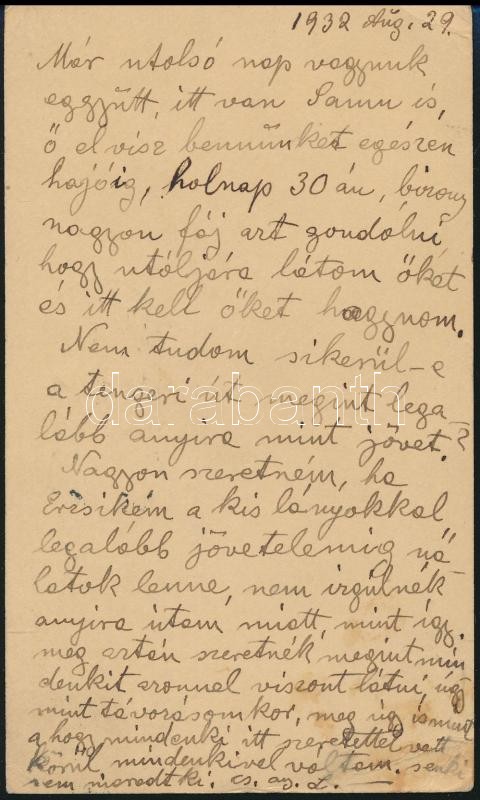 1932 Aug. 29.
Már utolsó nap vagyunk
eggyütt, itt van Samu is,
ő elvisz bennünket egészen
hajóig, holnap 30 án, bizony
nagyon fáj azt gondólni
hogy utóljára látom őket
és itt kell őket haggnom.
Nem tudom sikerül-e
a tengeri út megint lega
lább anyira mint jövet?
Nagyon szeretném, ha
Erzsikém a kis lányokkal
legalább jövetelemig ná
latok lenne, nem izgúlnék
anyira útam miatt, mint így.
meg aztán szeretnék megint min
denkit azonnal viszont látni, úgy
mint távozásomkor, meg úgy is mint
a hogy mindenki itt szeretettel vett
körül mindenkivel voltam. senki
nem maradt ki.
darabanth